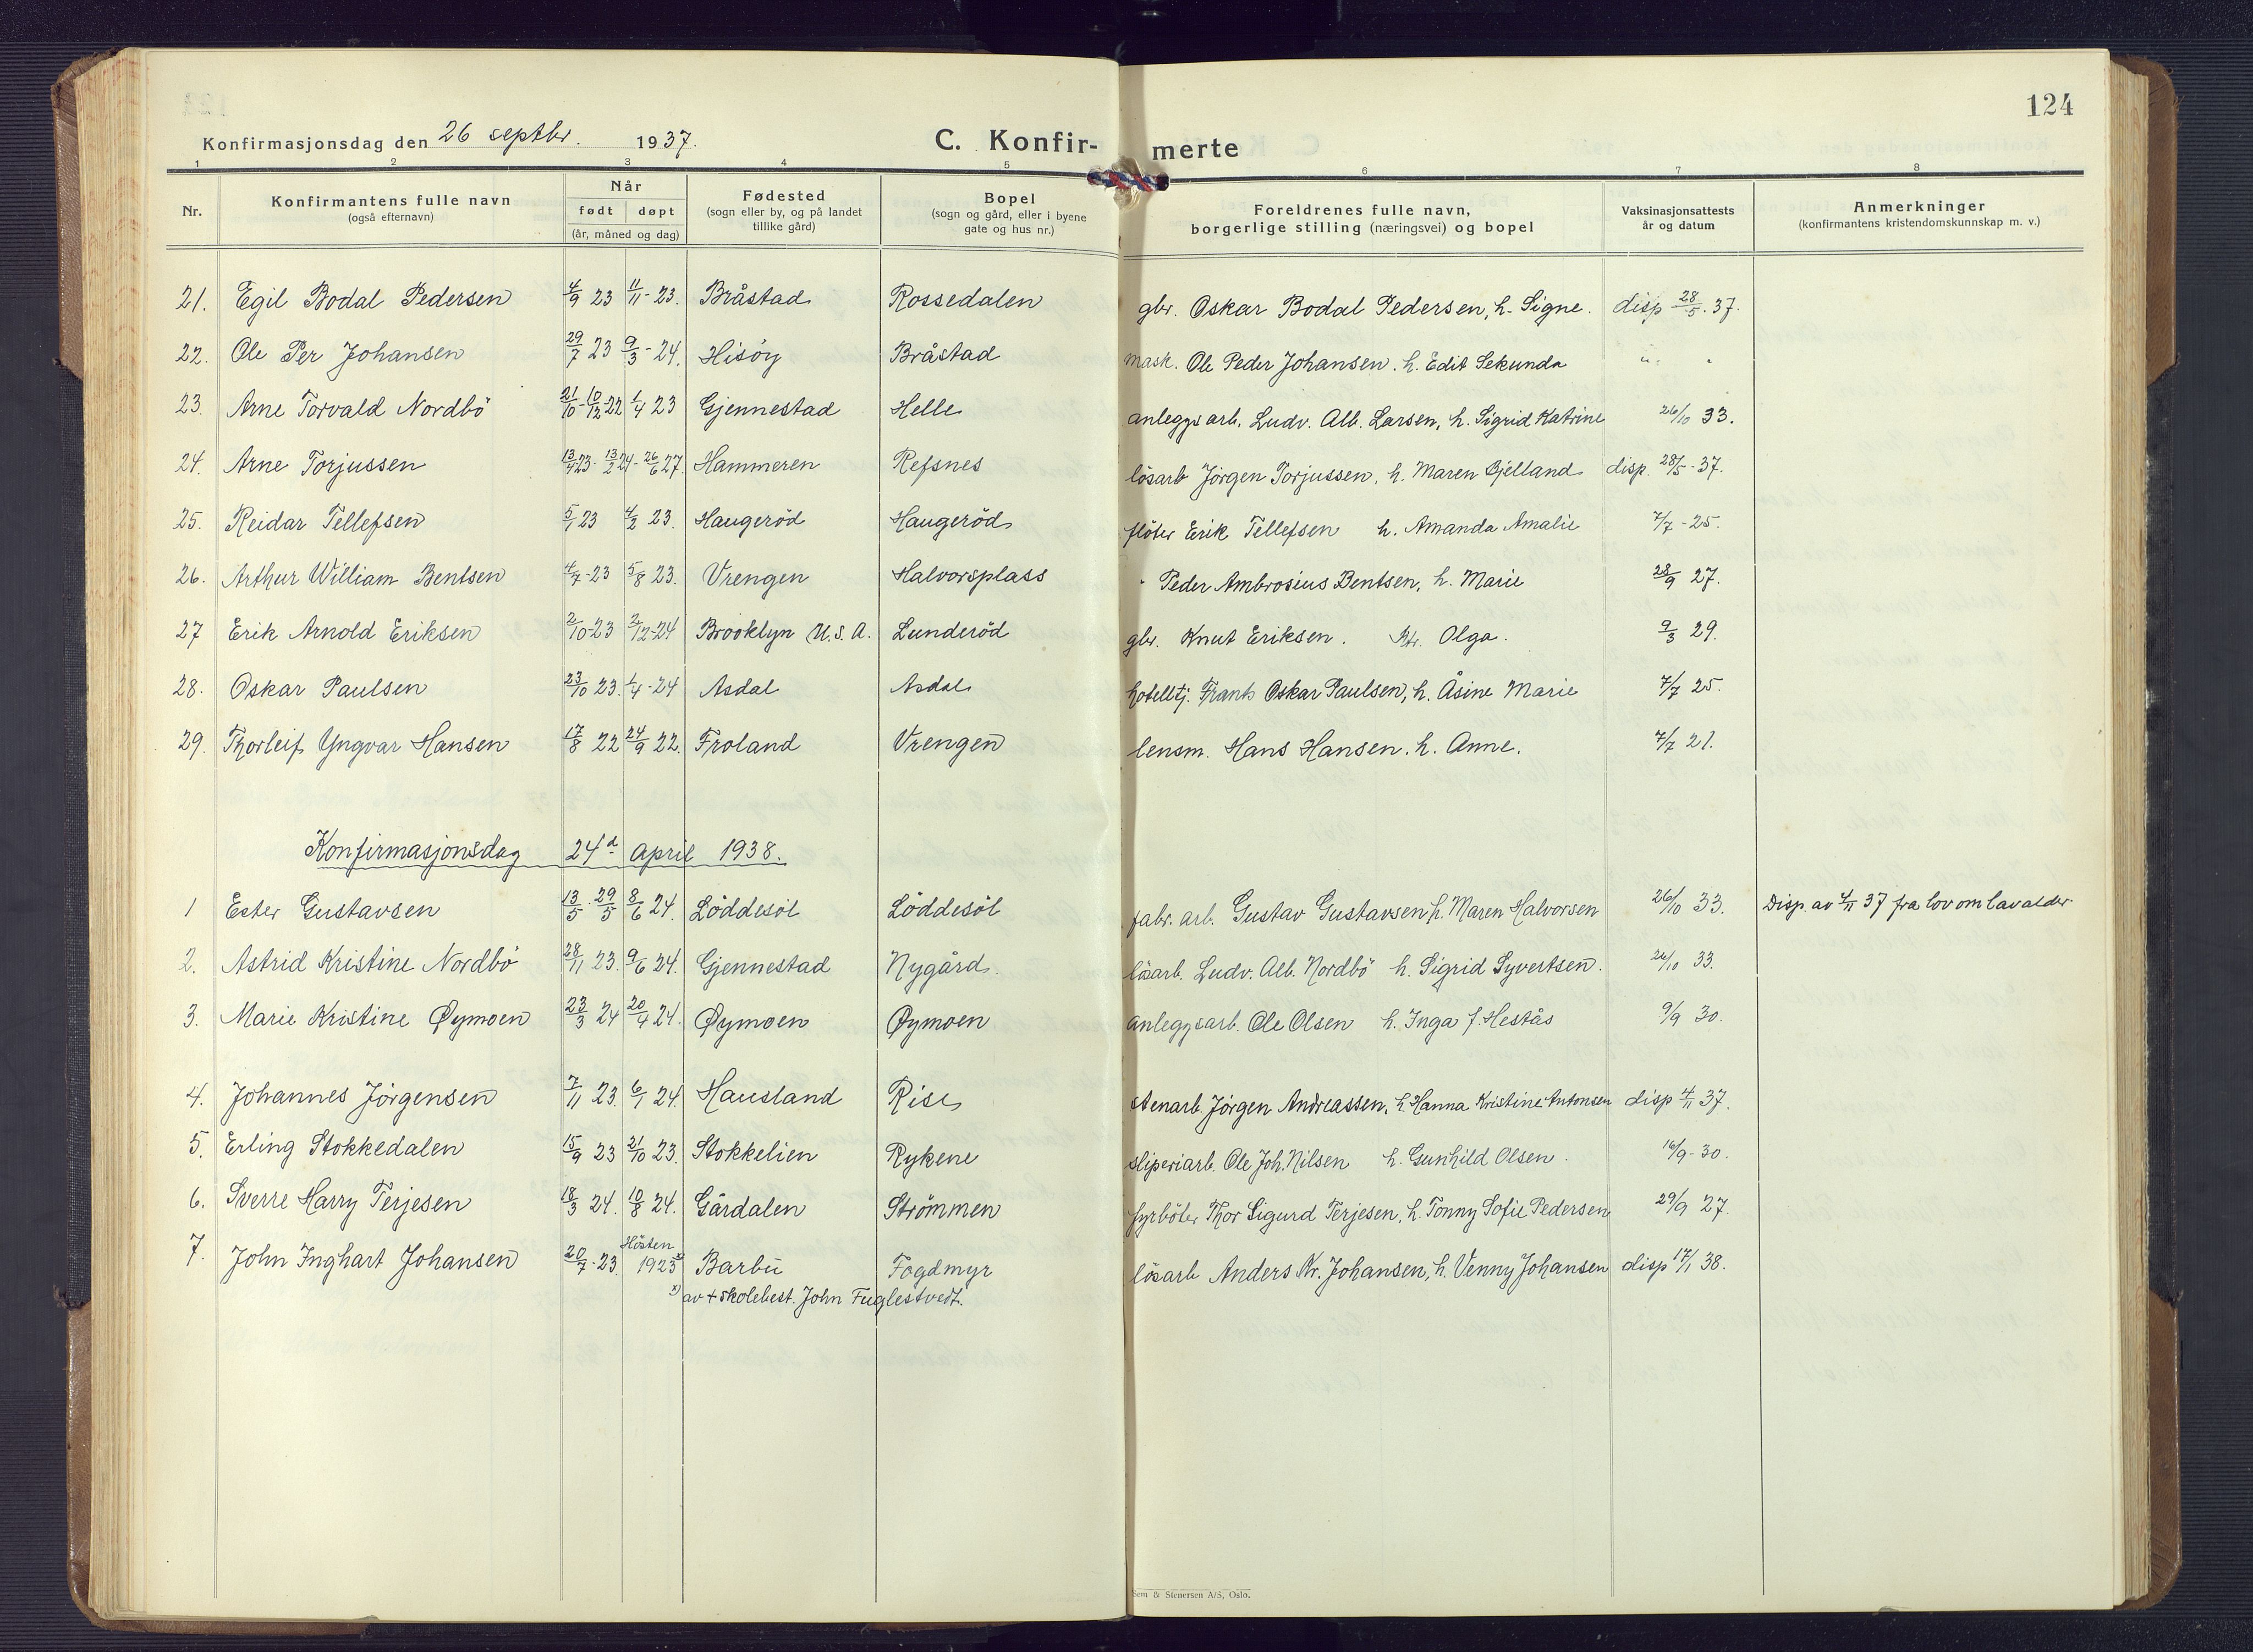 124
Konfirmasjonsdag den 26 septbr. 1937. C. Konfir- merte
1 2 3 4 5 6 7 8
Nr. Konfirmantens fulle navn (også efternavn) Når født døpt (år, måned og dag) Fødested (sogn eller by, og på landet tillike gård) Bopel (sogn og gård, eller i byene gate og hus nr.) Foreldrenes fulle navn, borgerlige stilling (næringsvei) og bopel Vaksinasjonsattests år og datum Anmerkninger (konfirmantens kristendomskunnskap m. v.)
21. Egil Bodal Pedersen 4/9 23 11/11-23. Bråstad Rossedalen gbr. Oskar Bodal Pedersen, h. Signe. disp 28/5. 37.
22. Ole Per Johansen 29/7 23 9/3-24. Hisöy Bråstad mask. Ole Peder Johansen. h. Edit Sekunda " "
23. Arne Torvald Nordbö 21/10-10/12-22 1/4 23 Gjennestad Helle anleggsarb. Ludv. Alb. Larsen, h. Sigrid Katrine 26/10 33.
24. Arne Torjussen 13/4 23- 13/2 24- 26/6 27. Hammeren Refsnes lösarb Jörgen Torjussen, h. Maren Gjelland disp. 28/5-37.
25. Reidar Tellefsen 5/1 23 4/2 23. Haugeröd Haugeröd flöter Erik Tellefsen h. Amanda Amalie 7/7-25.
26. Arthur William Bentsen 4/7-23 5/8 23. Vrengen Halvorsplass " Peder Ambrosius Bentsen, h. Marie 28/9 27.
27 Erik Arnold Eriksen 2/10-23 2/12-24 Brooklyn U.S.A. Lunderöd gbr. Knut Eriksen. Olga. 9/3 29.
28. Oskar Paulsen 23/10 23. 1/4-24 Asdal Asdal hotelltj. Frank Oskar Paulsen, h. Åsine Marie 7/7 25.
29. Thorleif Yngvar Hansen 17/8 22 24/9 22. Froland Vrengen lensm. Hans Hansen. h. Anne. 7/7 21.
Konfirmasjonsdag 24d April 1938.
1 Ester Gustavsen 13/5. 29/5 8/6 24. Löddesöl Löddesöl fabr. arb. Gustav Gustavsen h. Maren Halvorsen 26/10 33. Disp. av 4/11 37 fra lov om lavalder
2. Astrid Kristine Nordbö 28/11 23. 9/6 24. Gjennestad Nygård. lösarb. Ludv. Alb. Nordbö h. Sigrid Syvertsen. 26/10 33.
3. Marie Kristine Øymoen 23/3 24 20/4 24. Øymoen Øymoen anleggsarb. Ole Olsen h. Inga f. Hestås 9/9 30.
4. Johannes Jörgensen 7/11 23. 6/1 24. Hausland Rise stenarb. Jörgen Andreassen, h. Hanna Kristine Antonsen disp 4/11 37.
5. Erling Stokkedalen 15/9 23 21/10 23. Stokkelien Rykene sliperiarb. Ole Joh. Nilsen h. Gunhild Olsen. 16/9-30.
6. Sverre Harry Terjesen 18/3 24. 10/8 24. Gårdalen Strömmen fyrböter Thor Sigurd Terjesen, h. Tonny Sofie Pedersen 29/9 27.
7. John Inghart Johansen 20/7-23. Hösten 1923 x) Barbu Fogdmyr lösarb Anders Kr. Johansen, h. Venny Johansen disp 17/1 38.
x) av + skolebest. John Fuglestvedt.
Sem & Stenersen A/S, Oslo.